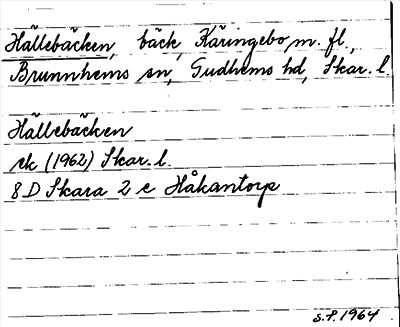 Hällebäcken, bäck, Käringebo m. fl.,
Brunnhems sn, Gudhems hd, Skar. l.
Hällebäcken
ek (1962) Skar. l.
8 D Skara 2 e Håkantorp
S.F. 1964